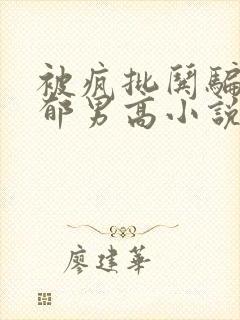 被疯批鬨騙
郁男高小説
廖建華